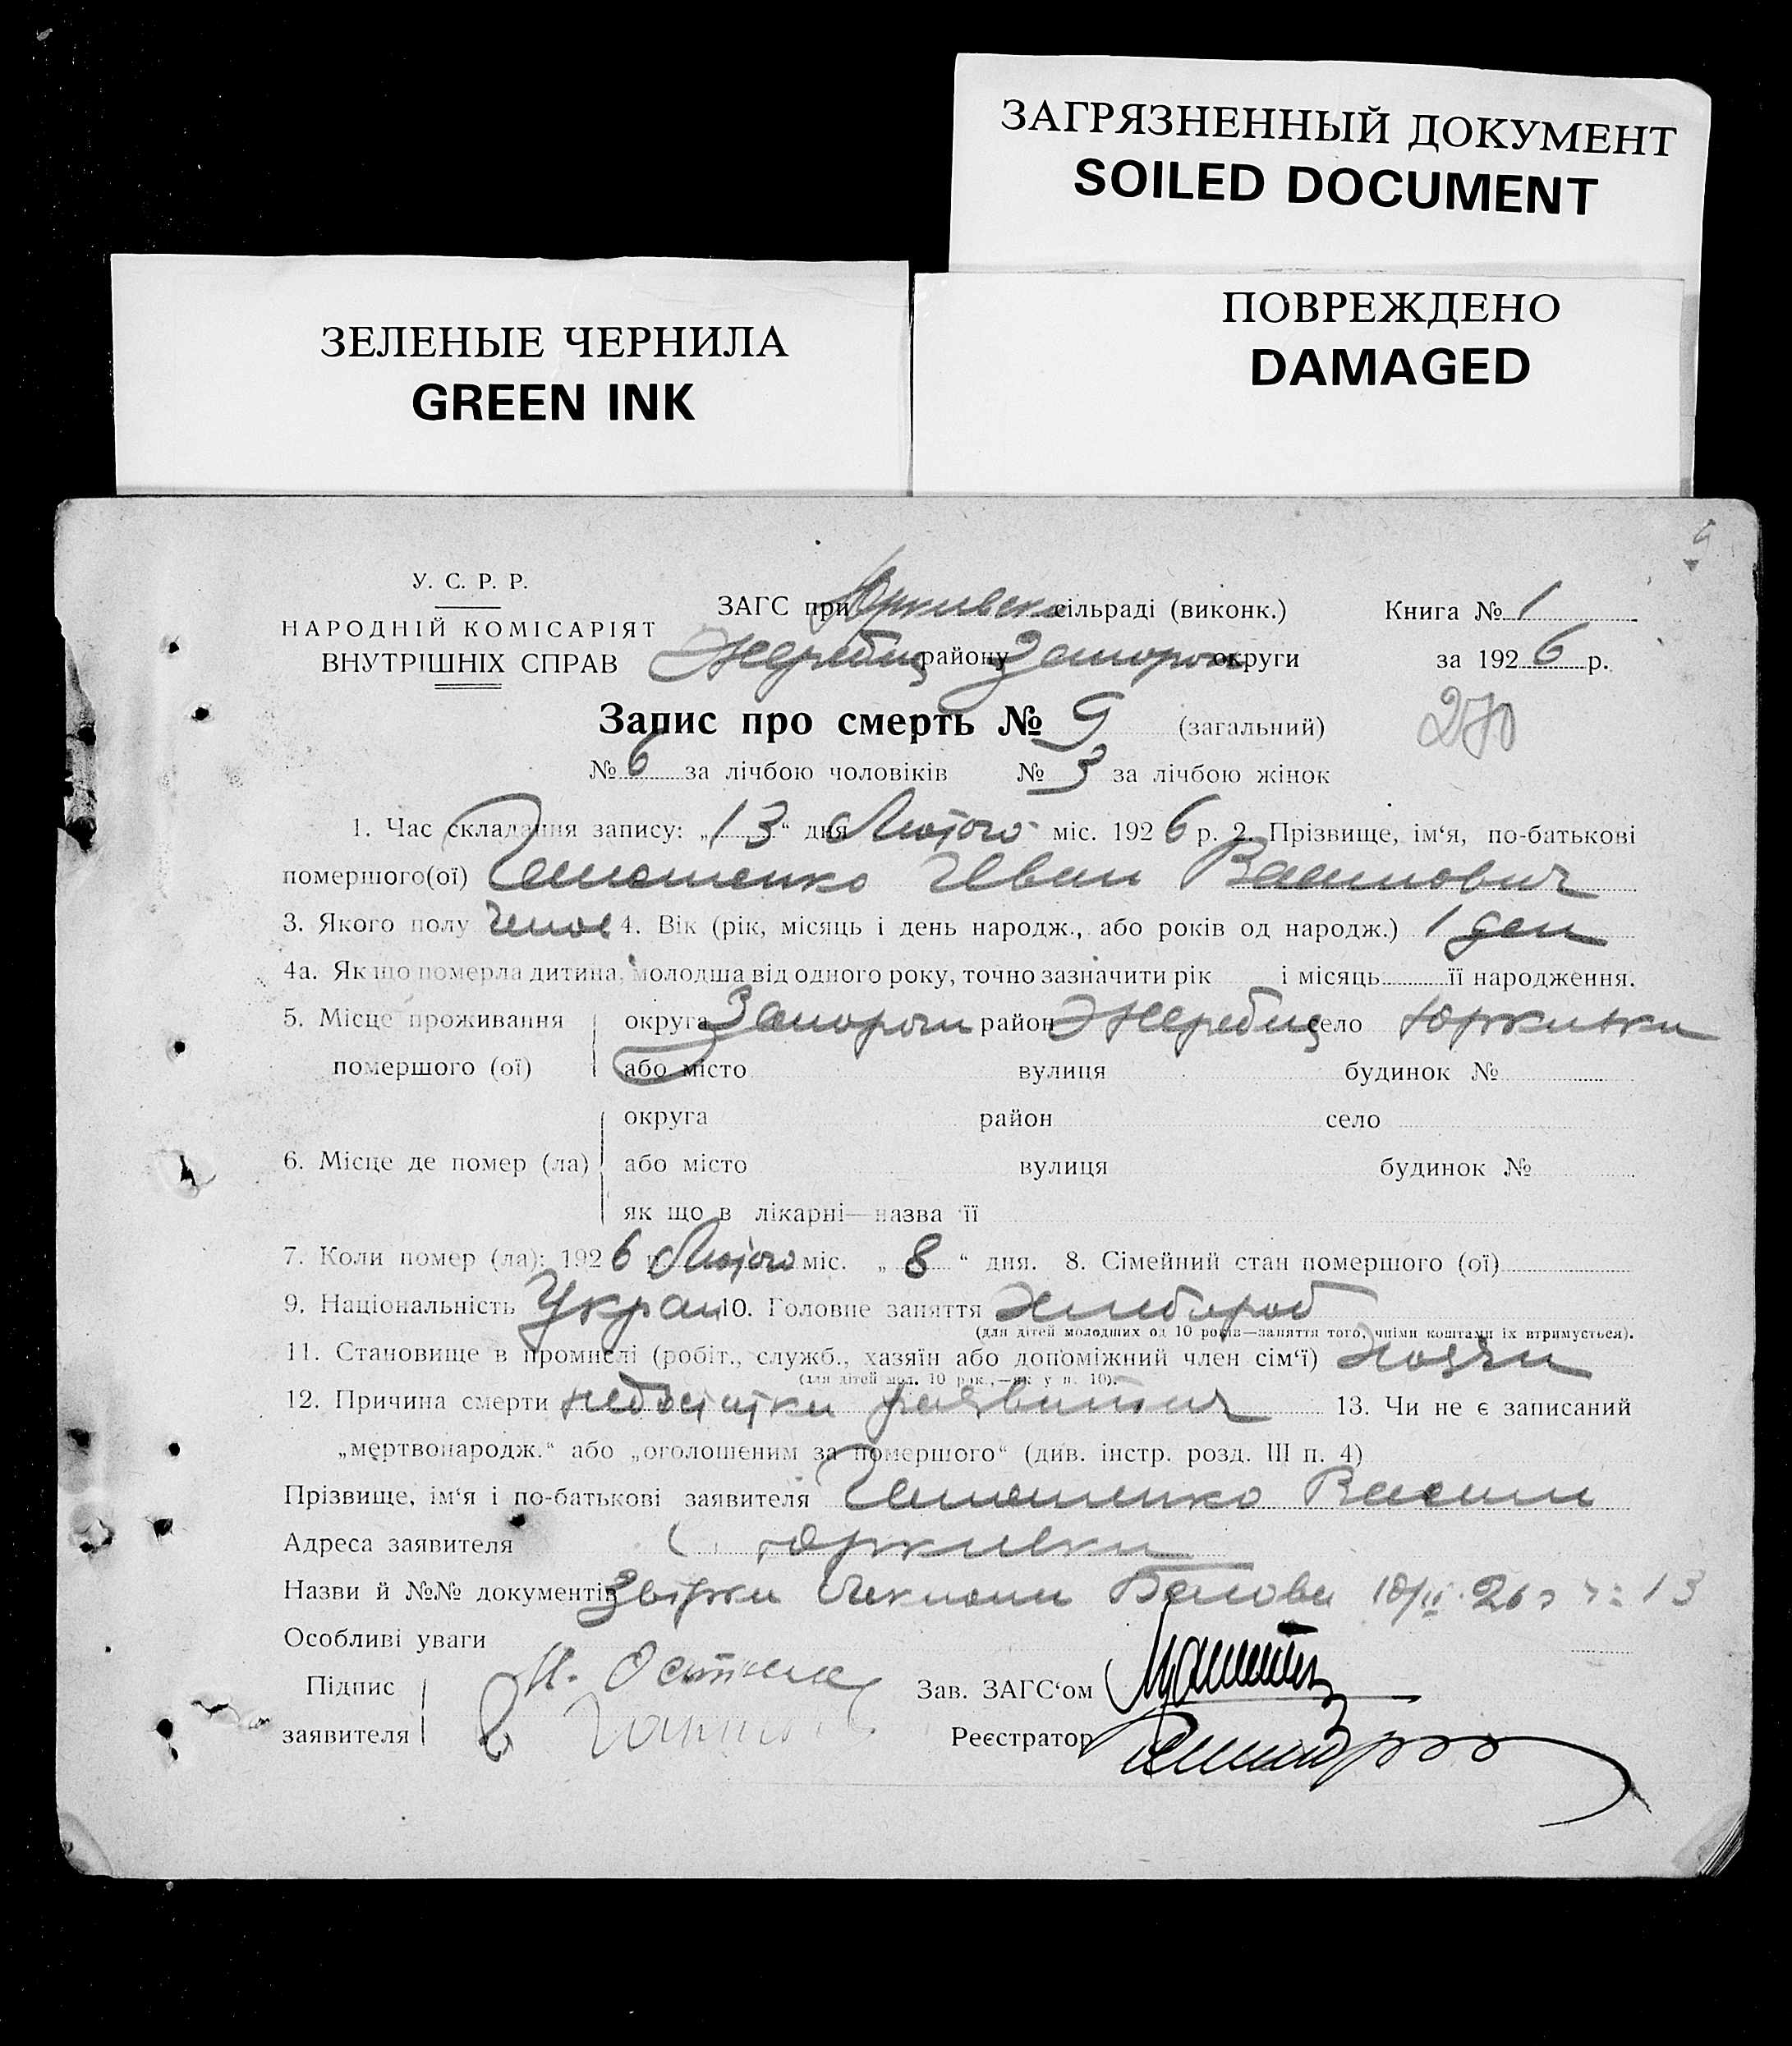 ЗАГРЯЗНЕННЫЙ ДОКУМЕНТ
SOILED DOCUMENT
ЗЕЛЕНЫЕ ЧЕРНИЛА
GREEN INK
ПОВРЕЖДЕНО
DAMAGED
У. С. Р. Р.
НАРОДНІЙ КОМІСАРІЯТ
ВНУТРІШНІХ СПРАВ
ЗАГС при Юрківськ сільраді (виконк.) Книга № 1
Жеребец району Запорож округи за 1926 р.
Запис про смерть № 9 (загальний) 270
№ 6 за лічбою чоловіків № 3 за лічбою жінок
1. Час складання запису: „13“ дня Лютого міс. 1926 р. 2. Прізвище, ім‘я, по-батькові
помершого(ої) Иван
3. Якого полу 4. Вік (рік, місяць і день народж., або років од народж.) 1 ден
4а. Як що померла дитина, молодша від одного року, точно зазначити рік і місяць її народження.
5. Місце проживання помершого (ої) округа Запорож район Жеребец село Юркивки
або місто вулиця будинок №
6. Місце де помер (ла) округа район село
або місто вулиця будинок №
як що в лікарні—назва її
7. Коли помер (ла): 1926 р. Лютого міс. „8“ дня. 8. Сімейний стан помершого (ої)
9. Національність Укра 10. Головне заняття хлибороб
(для дітей молодших од 10 років—заняття того, чиїми коштами їх втримується).
11. Становище в промислі (робіт., служб., хазяїн або допоміжний член сім‘ї)
(для дітей мол. 10 рок.,—як у п. 10).
12. Причина смерти недостатки развития 13. Чи не є записаний
„мертвонародж.“ або „оголошеним за помершого“ (див. інстр. розд. III п. 4)
Прізвище, ім‘я і по-батькові заявителя
Адреса заявителя С. Юркивки
Назви й №№ документів 13
Особливі уваги
Підпис
заявителя
Зав. ЗАГС‘ом
Реєстратор